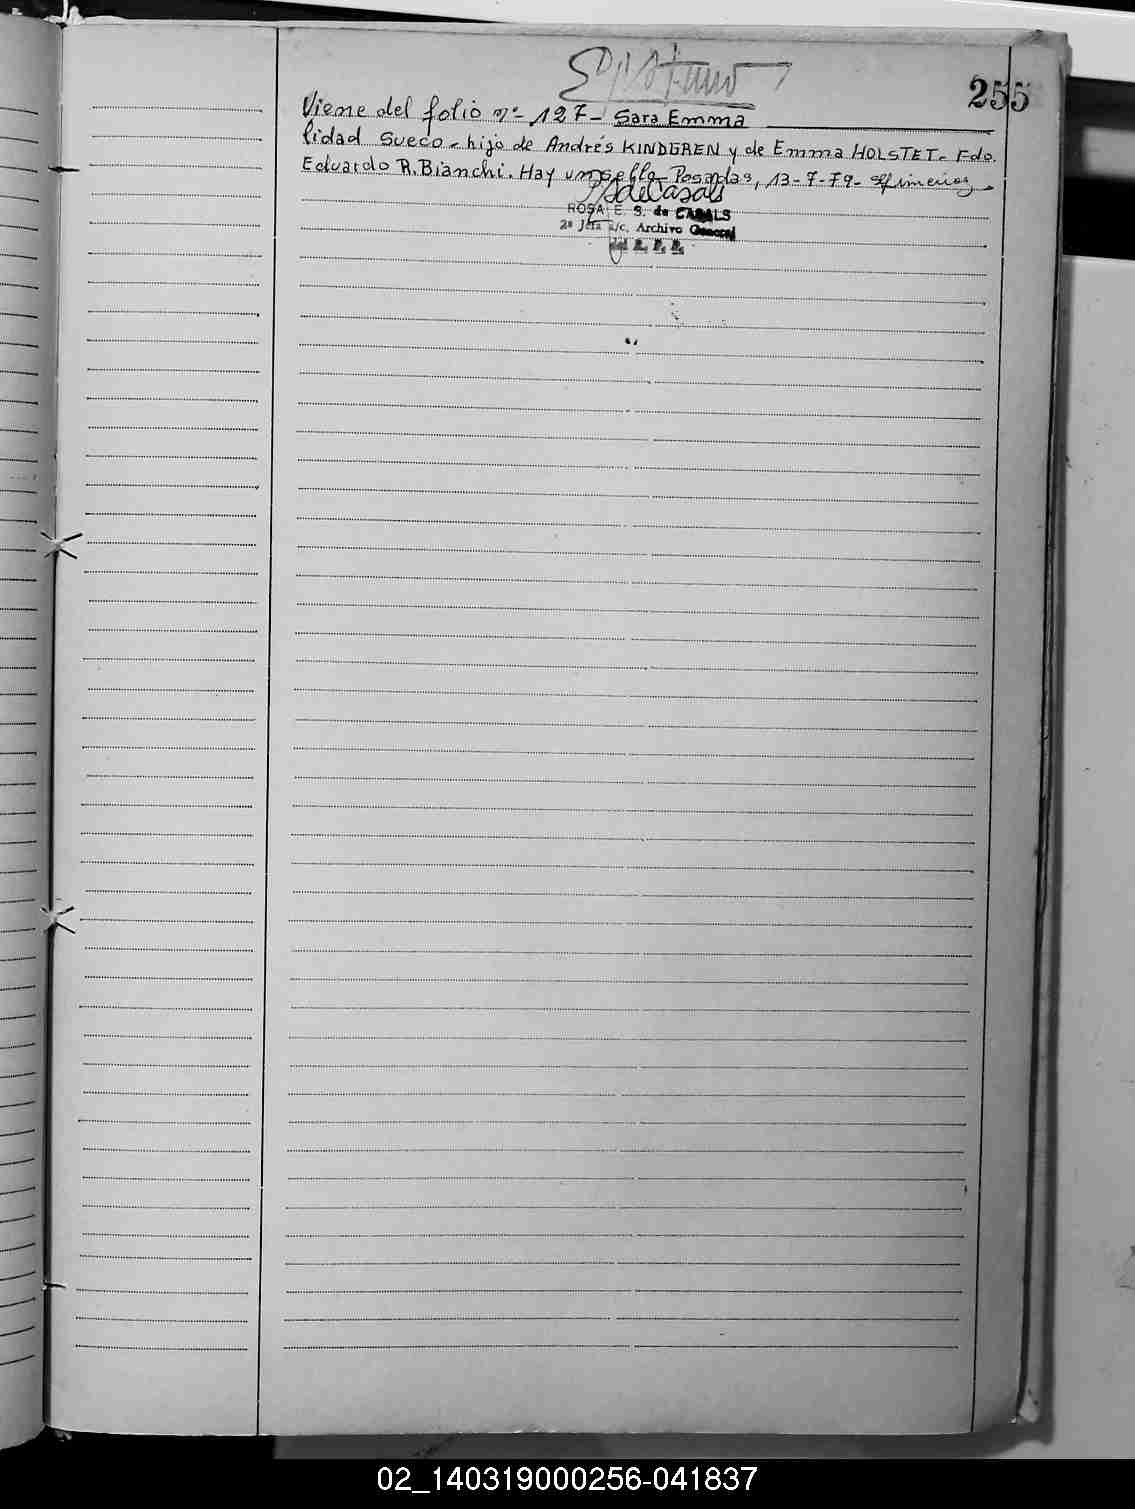 255
Viene del folio nº 127 - Sara Emma
lidad sueco - hijo de Andrés KINDGREN y de Emma HOLSTET - Fdo.
Eduardo R. Bianchi. Hay un sello - Posadas, 13-7-79 -
ROSA E. S. de CASALS
2ª Jefa a/c. Archivo General
02_140319000256-041837